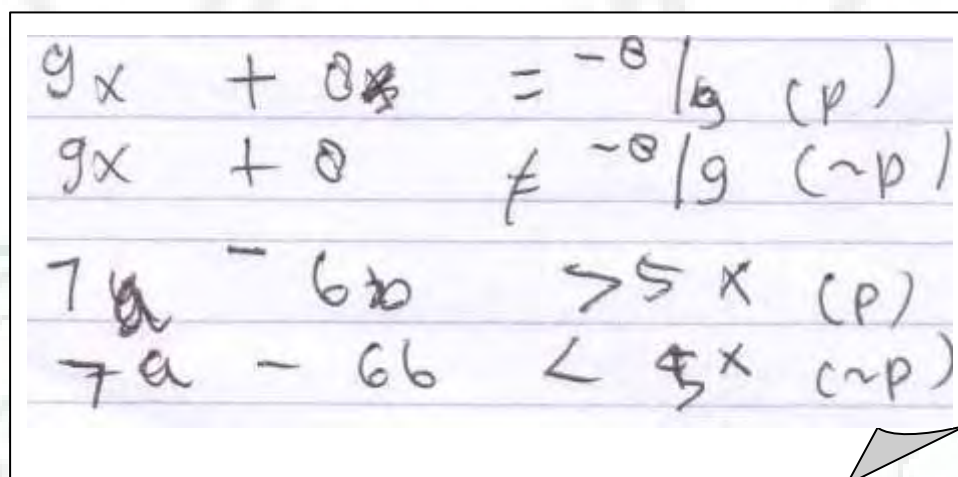 9x + 8 = -8/9 (p)
9x + 8 ≠ -8/9 (~p)
7a - 6b > 5x (p)
7a - 6b < 5x (~p)